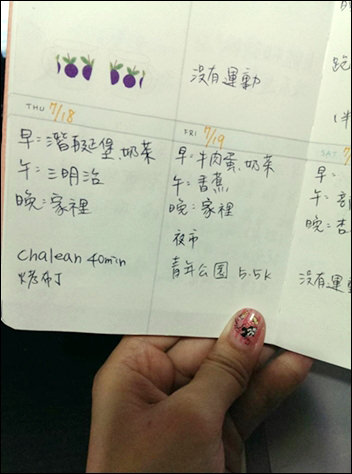 沒有運動
THU 7/18
早:潛艇堡、奶茶
午:三明治
晚:家裡
chalean 40min
烤布丁
FRI 7/19
早:牛肉蛋、奶茶
午:香蕉
晚:家裡
夜市
青年公園 5.5K
跑
SAT 7
早:
午:
晚:杏
沒有運